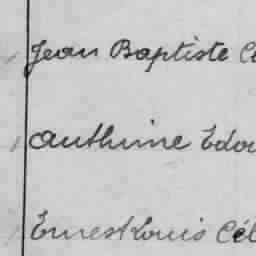 Jean Baptiste Cé
Authime Edou
Ernest Louis Cél